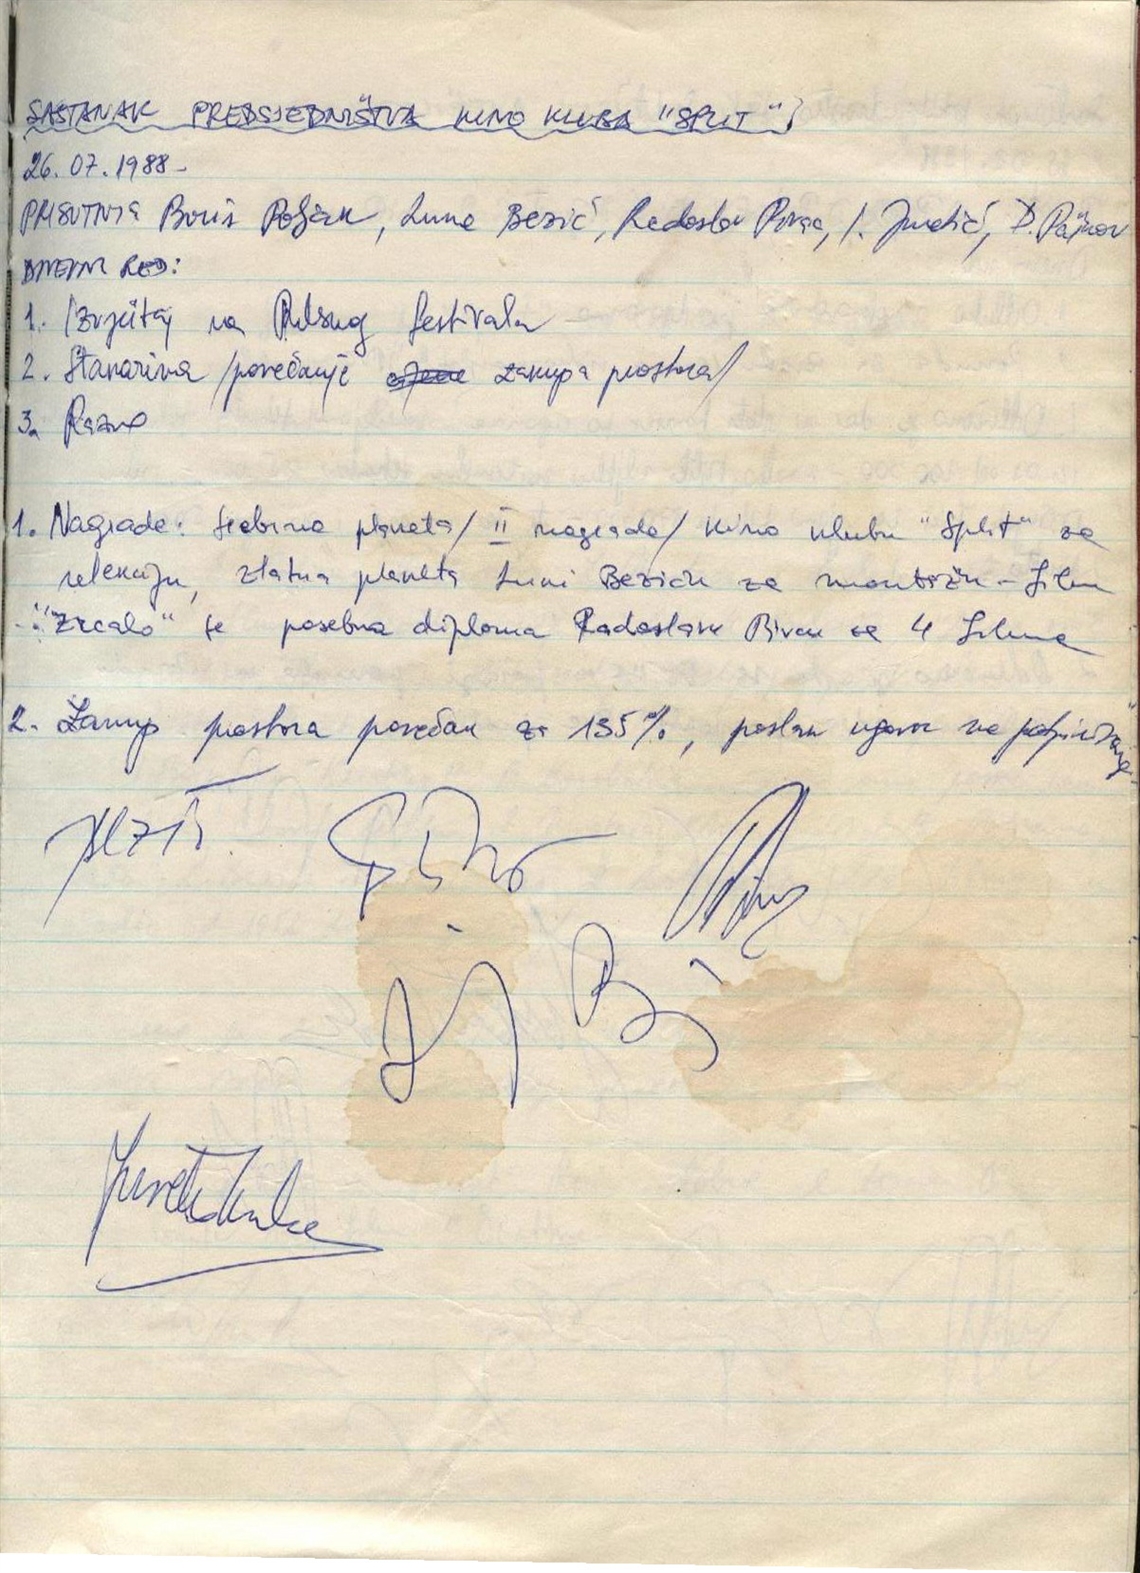 SASTANAK PREDSJEDNIŠTVA KINO KLUBA "SPLIT"
26.07.1988-
PRISUTNI Boris Poljak, Luna Bezić, Radoslav I. Juretić, P.
DNEVNI RED:
1. Izvještaj sa festivala
2. Stanarina /povećanje zakupa prostora/
3. Razno
1. Nagrade: Srebrna planeta / II nagrada / Kino klubu "Split" za
selekciju, zlatna planeta Luni Bezić za montažu - film
"Zrcalo" te posebna diploma Radoslavu za 4 filma
2. Zakup prostora povećan za 135%, poslan ugovor na potpisivanje